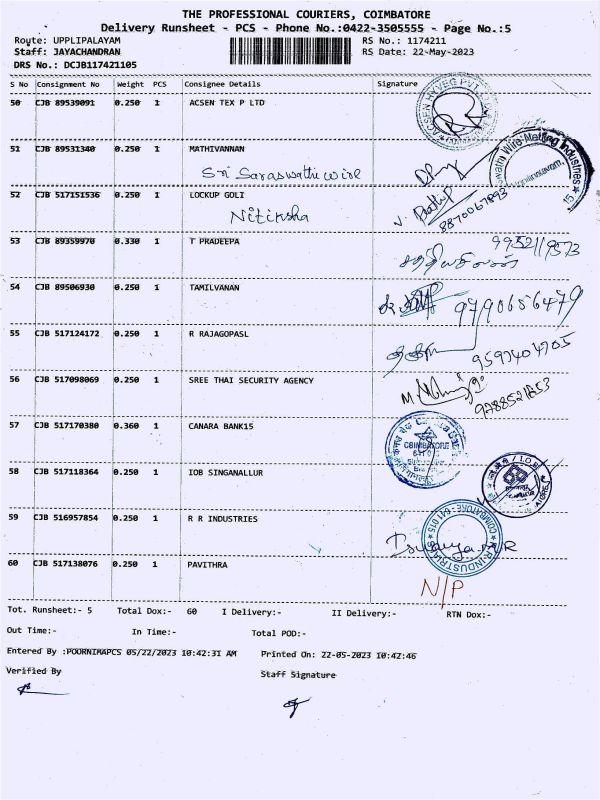 THE PROFESSIONAL COURIERS, COIMBATORE
Delivery Runsheet - PCS - Phone No.:0422-3505555 - Page No.:5
Route: UPPLIPALAYAM RS No.: 1174211
Staff: JAYACHANDRAN RS Date: 22-May-2023
DRS No.: DCJB117421105
S No Consignment No Weight PCS Consignee Details Signature
50 CJB 89539091 0.250 1 ACSEN TEX P LTD
51 CJB 89531340 0.250 1 MATHIVANNAN
Sri Saraswathi wire
52 CJB 517151536 0.250 1 LOCKUP GOLI
Nitiksha 8870067893
53 CJB 89359970 0.330 1 T PRADEEPA
54 CJB 89506930 0.250 1 TAMILVANAN
9790656479
55 CJB 517124172 0.250 1 R RAJAGOPASL
56 CJB 517098069 0.250 1 SREE THAI SECURITY AGENCY
57 CJB 517170380 0.360 1 CANARA BANK15
COIMBATORE
58 CJB 517118364 0.250 1 IOB SINGANALLUR
59 CJB 516957854 0.250 1 R R INDUSTRIES
60 CJB 517138076 0.250 1 PAVITHRA
N/P
Tot. Runsheet:- 5 Total Dox:- 60 I Delivery:- II Delivery:- RTN Dox:-
Out Time:- In Time:- Total POD:-
Entered By :POORNIMAPCS 05/22/2023 10:42:31 AM Printed On: 22-05-2023 10:42:46
Verified By Staff Signature